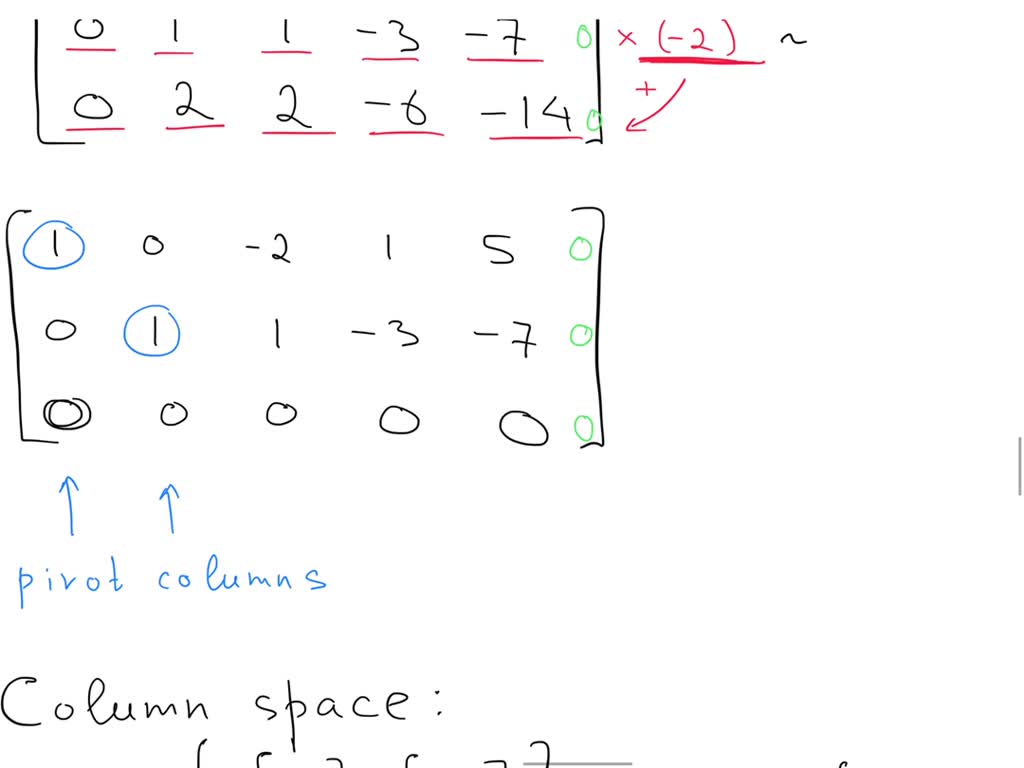 0 1 1 -3 -7 0 × (-2) ~
+
0 2 2 -6 -14 0
1 0 -2 1 5 0
0 1 1 -3 -7 0
0 0 0 0 0 0
pivot columns
Column space: